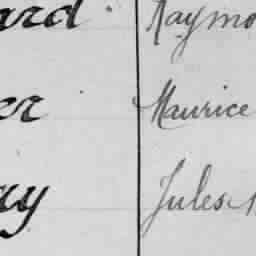 ard Raymo
er Maurice
ay Jules